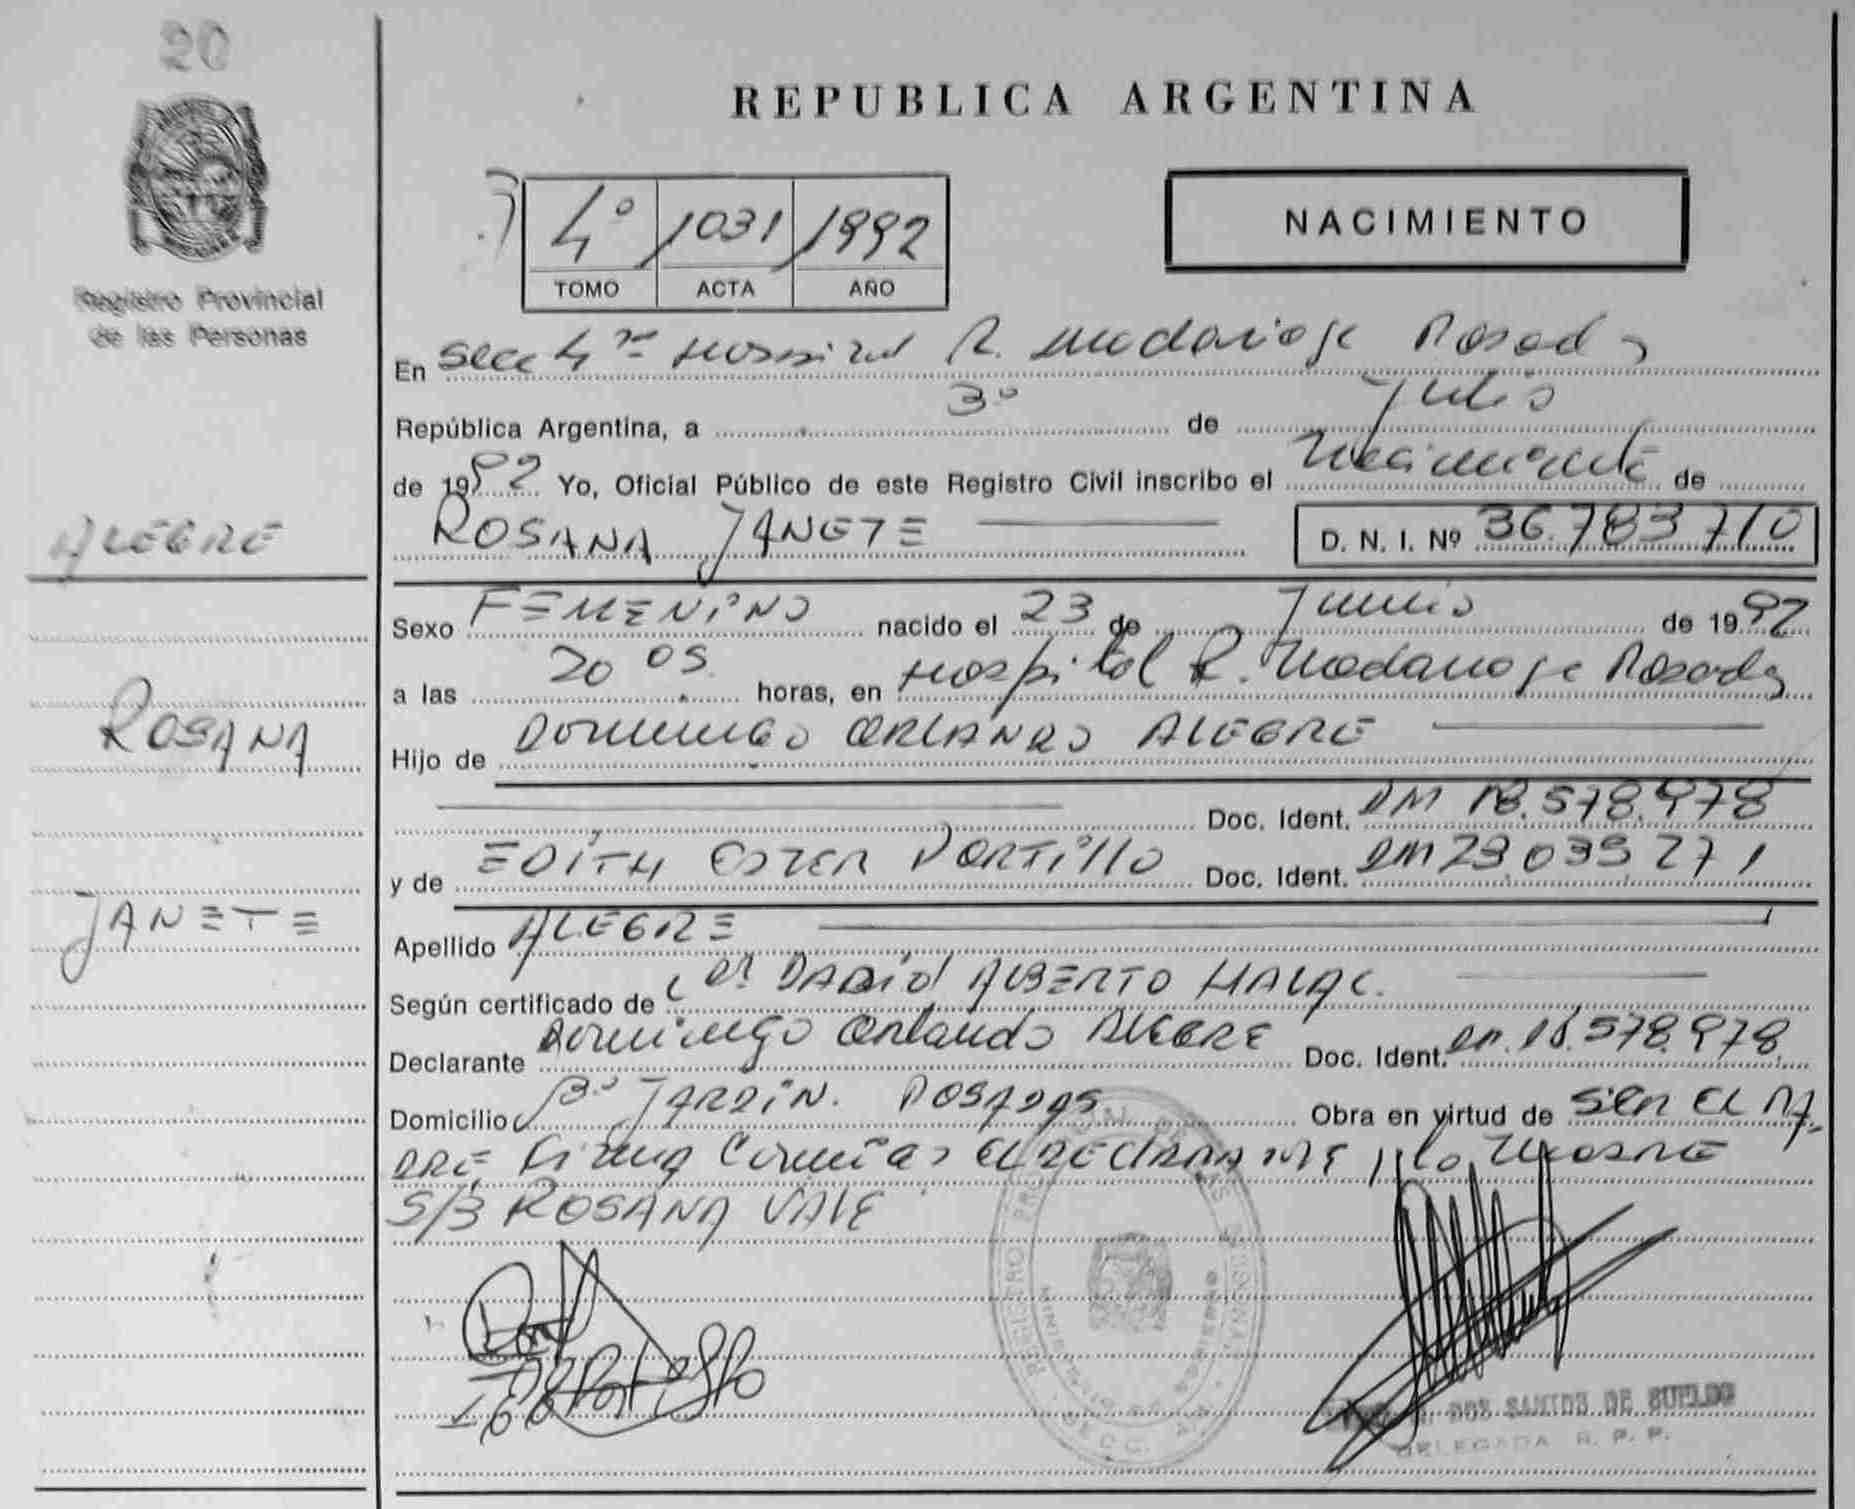 20
Registro Provincial
de las Personas
ALEGRE
ROSANA
JANETE
REPUBLICA ARGENTINA
4º 1031 1992
TOMO ACTA AÑO
NACIMIENTO
En Secc 4ta Hospital R. Madariaga Posadas
República Argentina, a 3º de Julio
de 1992 Yo, Oficial Público de este Registro Civil inscribo el Nacimiento de
ROSANA JANETE D. N. I. Nº 36.783710
Sexo FEMENINO nacido el 23 de Junio de 1992
a las 20 05 horas, en Hospital R. Madariaga Posadas
Hijo de DOMINGO ORLANDO ALEGRE
Doc. Ident. DM 18.578.978
y de EDITH ESTER PORTILLO Doc. Ident. DM 23.035.271
Apellido ALEGRE
Según certificado de Dr DAVID ALBERTO HALAC.
Declarante Domingo Orlando ALEGRE Doc. Ident. 18.578.978
Domicilio Bº JARDIN. POSADAS Obra en virtud de SER EL PA-
DRE Firma EL DECLARANTE y la MADRE
S/B ROSANA VALE
DOS SANTOS DE SUELDO
DELEGADA R. P. P.